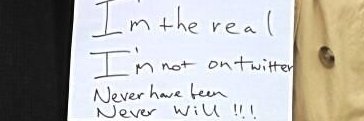 I'm the real
I'm not on twitter
Never have been
Never will !!!